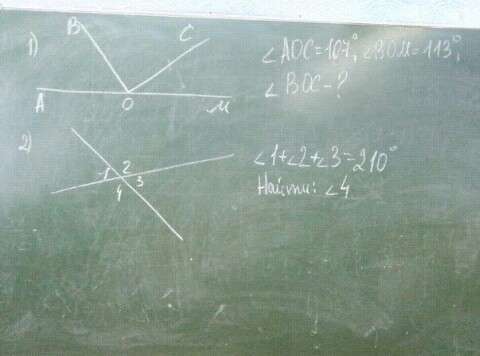 1)
B
C
A
O
M
∠AOC=107°, ∠BOM=113°,
∠BOC-?
2)
1 2
4 3
∠1+∠2+∠3=210°
Найти: ∠4